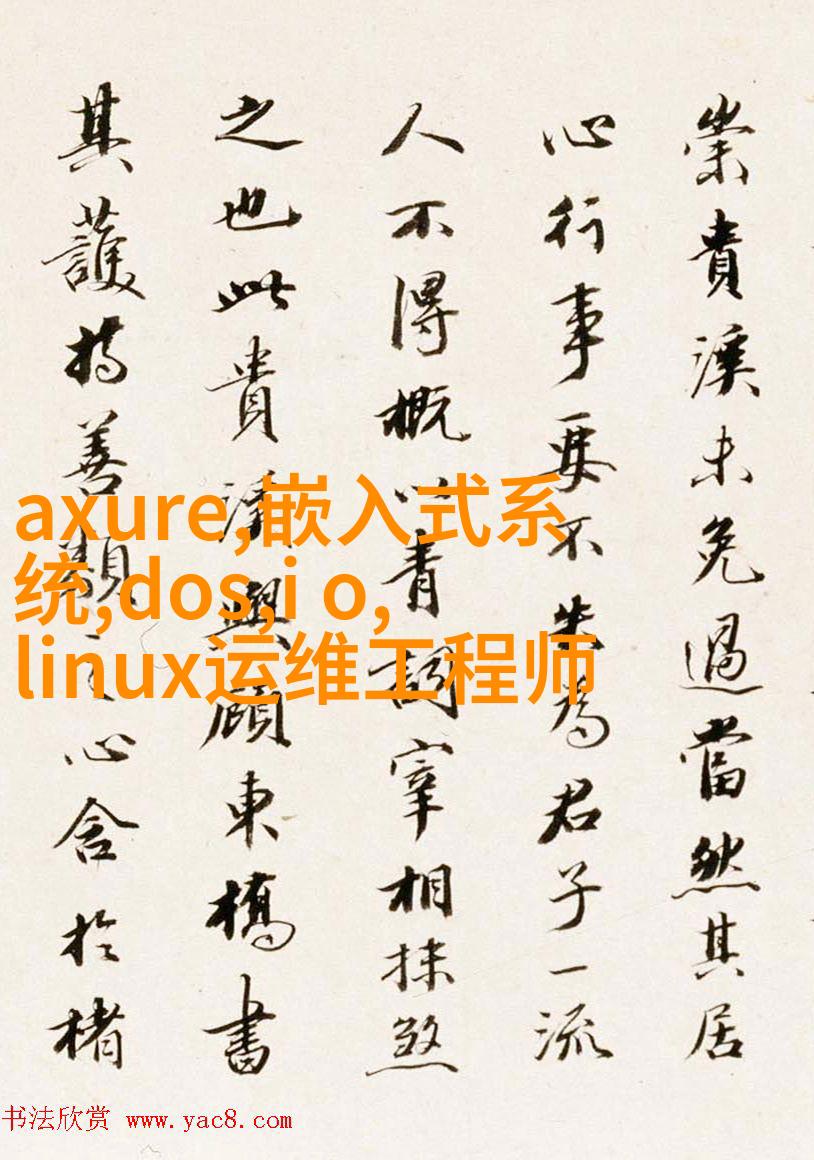 崇貴溪未免過當然其居
心行事要不失為君子一流
人不得概以青詞宰相抹煞
之也此貴溪與顧東橋書
其護持善類之心含於楮
axure,嵌入式系
统,dos,i o,
linux运维工程师
书法欣赏 www.yac8.com